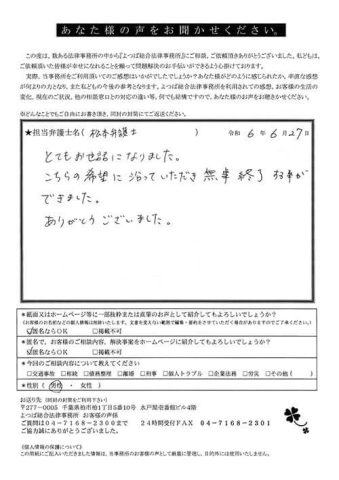 あなた様の声をお聞かせください。
この度は、数ある法律事務所の中から『よつば総合法律事務所』にご相談、ご依頼頂きありがとうございました。私どもは、
ご依頼頂いた皆様が幸せになれることを願って問題解決のお手伝いができるよう心掛けております。
実際、当事務所をご利用頂いてのご感想はいかがでしたでしょうか？あなた様がどのように感じられたか、率直な感想
が何よりの力となり、また私どもの今後の参考となります。よつば総合法律事務所を利用されての感想、お客様の生活の
変化、現在のご状況、他の相談窓口との対応の違い等、何でも結構ですので、あなた様のお声をお聴きかせください。
※どんなことでもご自由にお書き頂き、同封の封筒にてご返送ください。
★担当弁護士名(松本弁護士) 令和6年6月27日
とてもお世話になりました。
こちらの希望に沿っていただき無事終了する事が
できました。
ありがとうございました。
*紙面又はホームページ等に一部抜粋または直筆のお声として紹介してもよろしいでしょうか？
(お客様のお名前などの個人情報は削除いたします。文意を変えない範囲で編集・要約をさせていただく場合がありますのでご了承ください。)
☑匿名ならOK □掲載不可
*匿名で、お客様のご相談内容、解決事案をホームページに紹介してもよろしいでしょうか？
☑匿名ならOK □掲載不可
*今回のご相談内容について教えてください
□交通事故 □相続 □債務整理 □離婚 □刑事 □個人トラブル □企業法務 □労災 □その他( )
*性別(男性・女性)
お送り先(同封の封筒をご利用下さい)
〒277-0005 千葉県柏市柏1丁目5番10号 水戸屋壱番館ビル4階
よつば総合法律事務所 お客様の声係
ご質問は04-7168-2300まで 24時間受付FAX 04-7168-2301
ご協力誠にありがとうございました。
《個人情報の保護について》
この用紙にご記入いただきました情報は、当事務所のお客様の声として厳重に管理し、目的外には使用いたしません。